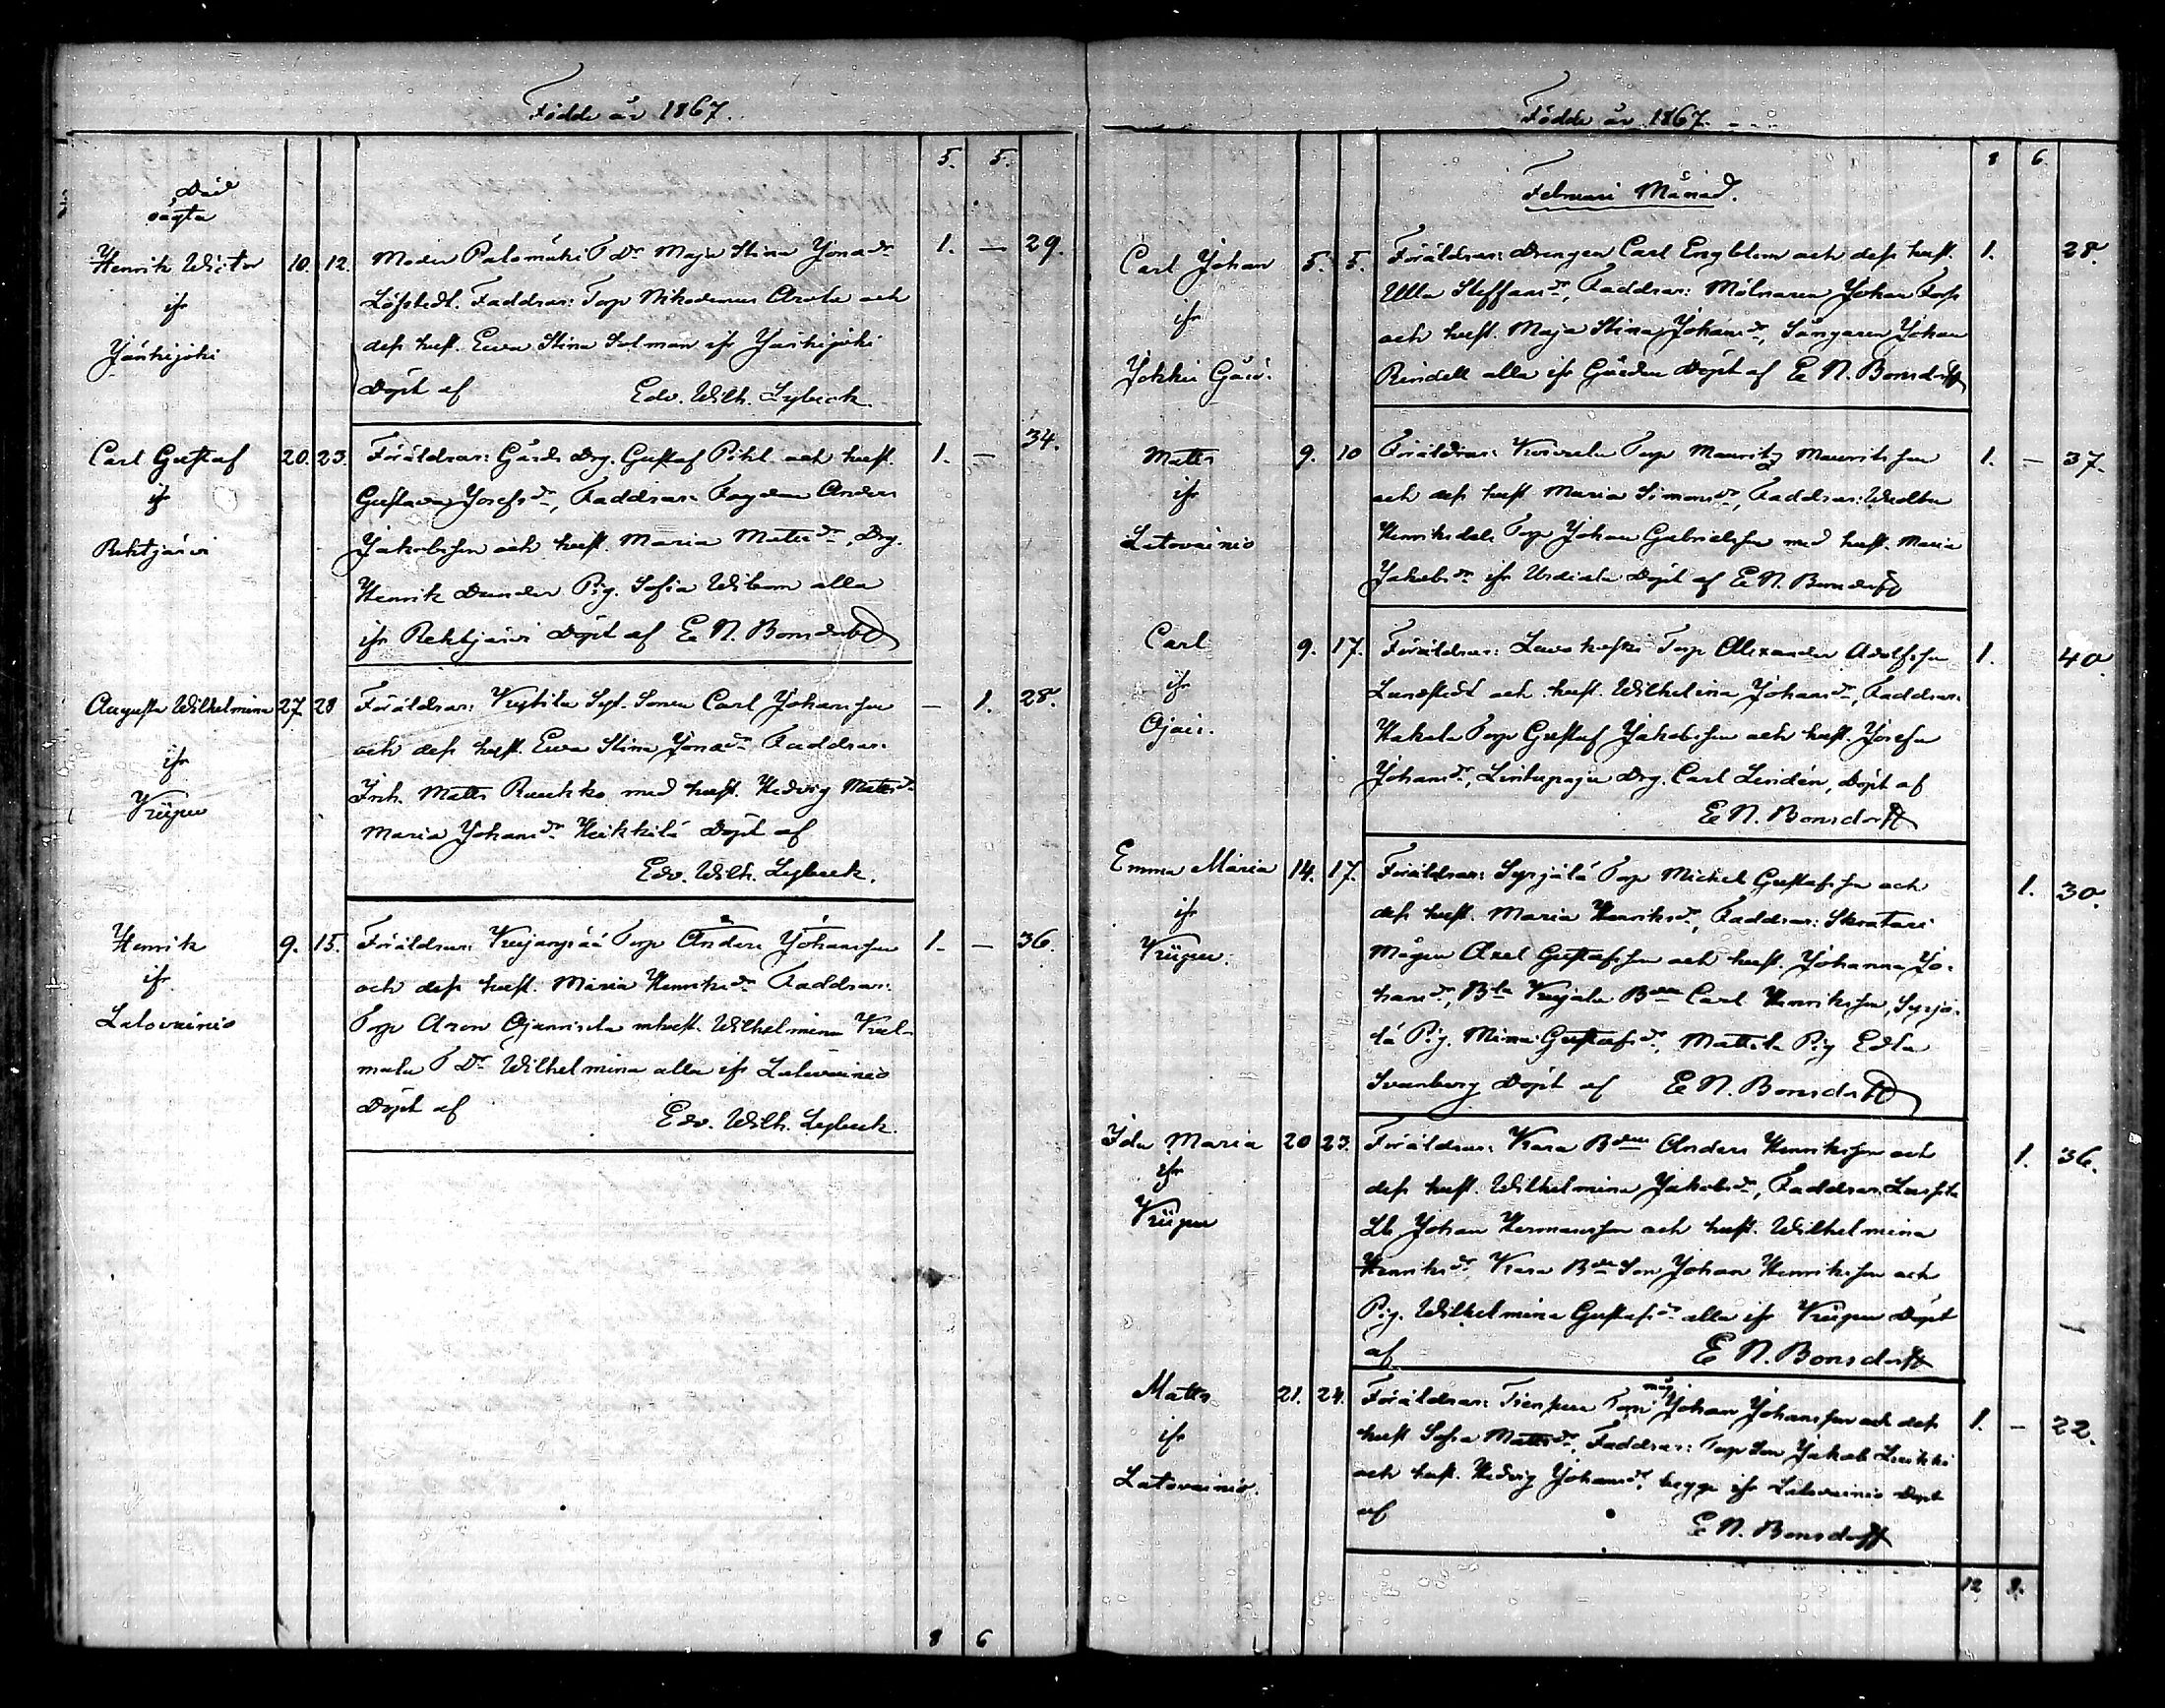 Födde år 1867.
5. 5.
Död
oägta
Henrik Wictor 10. 12. Moder Palomäki T Dr Maja Stina Jonadr 1. — 29.
ifr Löfstedt. Faddrar: Torp Nikodemus Arola och
Jänhijoki dess hust. Ewa Stina Salman ifr Jänhijoki
Döpt af Edv. Wilh. Lybeck.
Carl Gustaf 20. 23. Föräldrar: Gårds Drg. Gustaf Pihl och hust. 1. — 34.
ifr Gustava Josefsdr, Faddrar: Fogden Anders
Rehtjärvi Jakobsson och hust. Maria Matsdr, Drg.
Henrik Dunder Pig. Sofia Wibom alla
ifr Rehtjärvi Döpt af E N. Bonsdorff
Augusta Wilhelmina 27. 28 Föräldrar: Syt. Sonen Carl Johansson — 1. 28.
ifr och dess hust. Ewa Stina Jonadr Faddrar:
Kiipu Inh. Matts Ruukko med hust. Hedvig Mattsdr
Maria Johansdr Heikkilä Döpt af
Edv. Wilh. Lybeck.
Henrik 9. 15. Föräldrar: Torp Anders Johansson 1. — 36.
ifr och dess hust. Maria Henriksdr Faddrar:
Latovainio Torp Aron mhust. Wilhelmina
T Dr Wilhelmina alla ifr Latovainio
Döpt af Edv. Wilh. Lybeck.
8 6
Födde år 1867.
8 6
Februari Månad.
Carl Johan 5. 5. Föräldrar: Drengen Carl Engblom och dess hust. 1. 28.
ifr Ulla Steffansdr, Faddrar: Mölnaren Johan Fors
Jokkis Gård. och hust. Maja Stina Johansdr, Sångaren Johan
Rindell alla ifr Gården Döpt af E N. Bonsdorff
Matts 9. 10 Föräldrar: Torp Maurits Mauritsson 1. — 37.
ifr och dess hust. Maria Simonsdr, Faddrar:
Latovainio Henriksdals Torp Johan Gabrielsson med hust. Maria
Jakobsdr ifr Urdiala Döpt af E N. Bonsdorff
Carl 9. 17. Föräldrar: Torp Alexander Adolfsson 1. 40
ifr Lundstedt och hust. Wilhelmina Johansdr, Faddrar:
Ojais. Hakala Torp Gustaf Jakobsson och hust. Josefa
Johansdr, Lintupaju Drg. Carl Lindén, Döpt af
E N. Bonsdorff
Emma Maria 14. 17. Föräldrar: Syrjälä Torp Michel Gustafsson och 1. 30.
ifr dess hust. Maria Henriksdr, Faddrar:
Kiipu. Mågen Axel Gustafsson och hust. Johanna Jo-
hansdr, Bla Bden Carl Henriksson, Syrjä-
lä Pig. Mina Gustafsdr, Mattila Pig Edla
Svanberg Döpt af E N. Bonsdorff
Ida Maria 20 23. Föräldrar: Kara Bden Anders Henriksson och 1. 36.
ifr dess hust. Wilhelmina Jakobsdr, Faddrar: Lassila
Kiipu Lb Johan Hermansson och hust. Wilhelmina
Henriksdr, Kara Bde Son Johan Henriksson och
Pig. Wilhelmina Gustafsdr alla ifr Kiipu Döpt
af E N. Bonsdorff
Matts 21. 24. Föräldrar: Torp måg Johan Johansson och dess 1. — 22.
ifr hust Sofia Mattsdr, Faddrar: Torp Son Jakob
Latovainio. och hust. Hedvig Johansdr, begge ifr Latovainio Döpt
af E N. Bonsdorff
12 8.